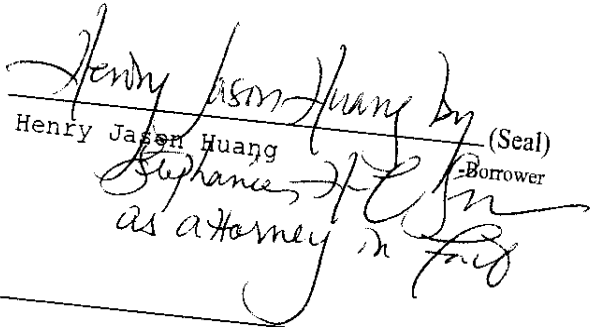 Henry Jason Huang by
(Seal)
Henry Jason Huang
-Borrower
Stephanie
as attorney in fact